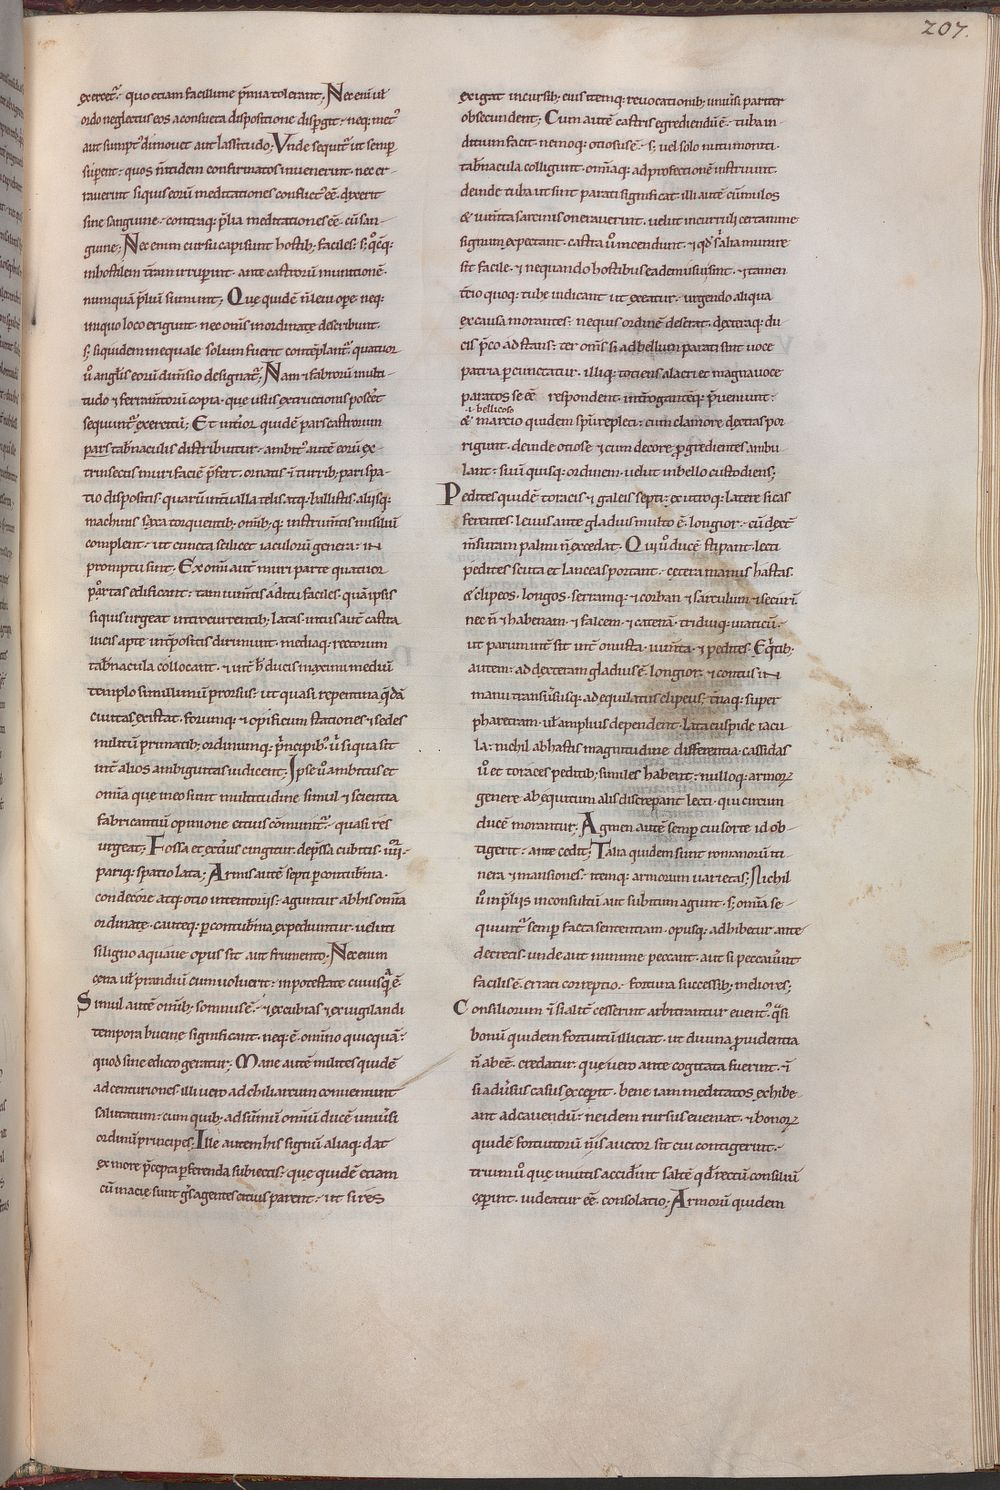 207.
exercet᷑· quo etiam facillime p̄mia tolerant; Nec eni᷑ ul᷑
ordo neglectus eos a consueta dispositione disp̱git· neq; met᷒
aut sumpt᷒ dimouet aut lassitudo; Vnde sequit᷑ ut semp̱
sup̱ent· quos n̄ itidem confirmatos inuenerint· nec er-
rauerit siquis eorū meditationes conflict᷒ eē· dixerit
sine sanguine· contraq; p̄lia meditationes eē· cū san-
guine; Nec enim cursu capi sunt hostib; faciles· s; qᷓcq;
in hostilem t̄ram irrup̱int· ante castrorū munitionē·
numquā p̄liū sumunt; Quę quidē n̄ leui ope· neq;
iniquo loco erigunt· nec om̄s inordinatę describunt·
s; siquidem inequale solum fuerit conteplant᷑· quatuor
u᷑ angl̄is eorū dim̄sio designat᷑; Nam & fabrorū multi-
tudo & ferram̄torū copia· que usus extructionis poscet
sequunt᷑ exercitū; Et int̄ior quidē pars castrorum
pars tab̄naculis distribuitur· ambit᷒ autē eorū ex-
trinsecus muri faciē p̄fert· ornatus & turrib; pari spa-
tio dispositis· quarū int̄ualla telis atq; ballistis aliisq;
machinis saxa torquentib;· om̄ib; q; instrum̄tis misiliū
complent· ut cuncta scilicet iaculorū genera in
promptu sint; Ex om̄i aut᷑ muri parte quatuor
portas edificant· tam ium̄tis aditu faciles· quā ipsis
siquis urgeat intro currentib; latas· int᷒ aut᷑ castra
uicis apte int̄positis dirimunt· mediaq; rectorum
tab̄nacula collocant· & int̄ h᷑ ducis maximi mediū
templo simillimū prorsus· ut quasi repentina qᷓdā
ciuitas existat· forumq; & opificum stationes & sedes
militū primatib; ordinumq; p̄ncipib᷒ u᷑ siqua sit
int̄ alios ambiguitas iudicent; Ipse u᷑ ambitus et
om̄ia que in eo sunt multitudine simul & scientia
fabricantiū opinione citius cōmunit᷑· quasi res
urgeat; Fossa et ext̄ius cingitur· dep̄ssa cubitis· iiii·
pariq; spatio lata; Armis autē septi p̱ contub̄nia·
con decore atq; otio in tentoriis· aguntur ab his om̄ia
ordinatę· cauteq; p̱ contub̄nia expediuntur· ueluti
si ligno aquaue opus sit aut frumento· Nec enim
cena ul᷑ prandiū cum uoluerit· in potestate cuiusqᷓ ē·
Simul autē om̄ib; somnus ē· & excubias & exuigilandi
tempora bucine significant· neq; ē· om̄ino quicquā·
quod sine edicto geratur; Mane autē milites quidē
ad centuriones· illi uero ad chiliarcum conueniunt
salutatum· cum quib; ad sūmū om̄iū ducē uniūsi
ordinū principes; Ille autem his signū aliaq; dat
ex more p̄cepta p̱ferenda subiectis· que quidē etiam
cū in acie sunt gᷓs agentes citius parent· ut si res
exigat in cursib; eius itemq; reuocationib; uniūsi pariter
obsecundent; Cum autē castris egrediendū ē· tuba in-
ditium facit· nemoq; otiosus ē· s; uel solo nutu moniti·
tab̄nacula colligunt· om̄iaq; ad profectionē instruunt·
deinde tuba ut sint parati significat· illi autē cū mulos
& ium̄ta sarcinis onerauerint· uelut in curruli certamine
signum expectant· castra u᷑ incendunt· & qd᷑ s᷑ alia munire
sit facile· & ne quando hostibus eadem usui sint· & tamen
t̄cio quoq; tube indicant ut exeatur· urgendo aliqua
ex causa morantes· nequis ordinē deserat· dext̄aq; du-
cis p̄co adstans· ter om̄s si ad bellum parati sint uoce
patria p̱cunctatur· illiq; totiens alacri et magna uoce
paratos se eē respondent· int̄rogantēq; p̄ueniunt·
.i. bellicoso
& marcio quidem sp̄u repleti· cum clamore dextras por
rigunt· deinde otiose & cum decore p̱gredientes ambu
lant· suū quisq; ordinem· uelut in bello custodiens;
Pedites quidē toracis & galeis septi· ex utroq; latere sicas
ferentes· leuus ante gladius multo ē· longior· cū dext᷑
m̄suram palmi n̄ excedat· Qui u᷑ ducē stipant· lecti
pedites scuta et lanceas portant· cetera manus hastas·
& clipeos· longos· serramq; & corban & sarculum & securi᷑
nec n̄ & habenam· & falcem· & catenā· triduiq; uiaticū·
ut parum int̄ sit int̄ onusta· ium̄ta· & pedites· Eqᷓtib;
autem· ad dexteram gladius ē· longior· & contus in
manu transūsusq; ad equi latus clipeus, t̄naq; super
pharetram· ul᷑ amplius dependent· lata cuspide iacu
la· nichil ab hastis magnitudine differentia· cassidas
u᷑ et toraces peditib; similes habent· nulloq; armoꝝ
genere ab equitum alis discrepant lecti· qui circum
ducē morantur; Agmen autē semp̱ cui sorte id ob-
tigerit· ante cedit; Talia quidem sunt romanorū iti-
nera & mansiones· itemq; armorum uarietas; Nichil
u᷑ in p̄liis inconsultū aut subitum agunt· s; om̄ia se-
quunt᷑ semp̱ facta sententiam· opusq; adhibetur ante
decretis· unde aut minime peccant· aut si peccauerint
facilis ē· errati correptio· fortuna successib; meliores;
Consiliorum & si alit᷑ cesserint arbitrantur euent᷒· qᷓsi
bonū quidem fortuitū illiciat· ut diuina p̱uidentia
n̄ ab eē· credatur· que uero ante cogitata fuerint· &
si adūsus casus exceperit· bene iam meditatos exhibe-
ant ad cauendū· ne idem rursus eueniat· & bonoꝝ
quidē fortuitorū n̄ is auctor sit cui contigerint·
tritium u᷑ que inuitis accid̄int salt̄e qd᷑ rectū consiliū
cep̱int· uideatur eē· consolatio; Armorū quidem